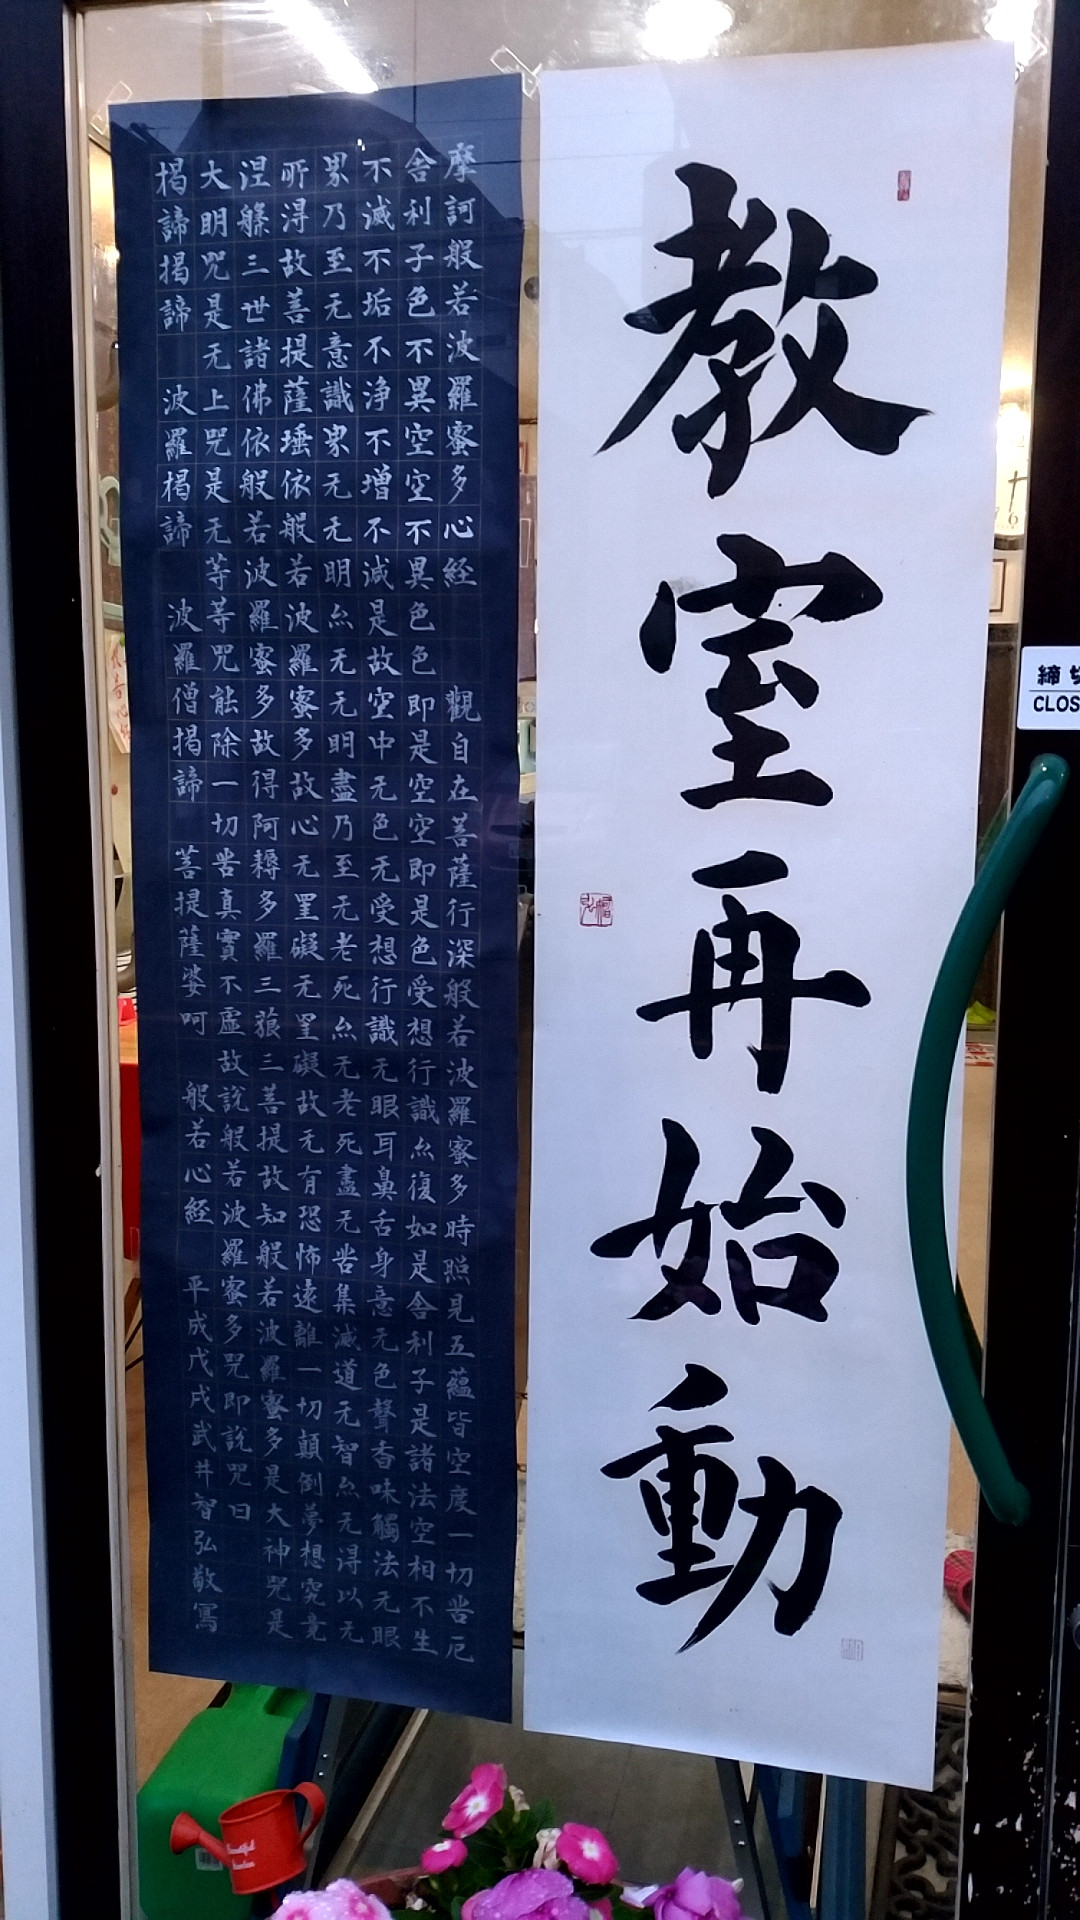 教室再始動
摩訶般若波羅蜜多心経 觀自在菩薩行深般若波羅蜜多時照見五蘊皆空度一切苦厄
舎利子色不異空空不異色色即是空空即是色受想行識亦復如是舎利子是諸法空相不生
不滅不垢不浄不増不減是故空中无色无受想行識无眼耳鼻舌身意无色聲香味觸法无眼
界乃至无意識界无无明亦无无明盡乃至无老死亦无老死盡无苦集滅道无智亦无得以无
所得故菩提薩埵依般若波羅蜜多故心无罣礙无罣礙故无有恐怖遠離一切顛倒夢想究竟
涅槃三世諸佛依般若波羅蜜多故得阿耨多羅三藐三菩提故知般若波羅蜜多是大神咒是
大明咒是无上咒是无等等咒能除一切苦真實不虛故說般若波羅蜜多咒即說咒曰
揭諦揭諦 波羅揭諦 波羅僧揭諦 菩提薩婆呵 般若心経 平成戊戌武井智弘敬寫
締切
CLOS